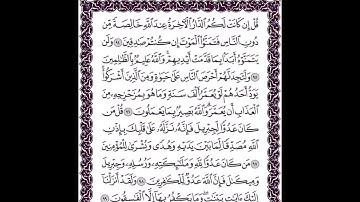 قُلْ إِن كَانَتْ لَكُمُ الدَّارُ الْآخِرَةُ عِندَ اللَّهِ خَالِصَةً مِّن
دُونِ النَّاسِ فَتَمَنَّوُا الْمَوْتَ إِن كُنتُمْ صَادِقِينَ ٩٤ وَلَن
يَتَمَنَّوْهُ أَبَدًا بِمَا قَدَّمَتْ أَيْدِيهِمْ وَاللَّهُ عَلِيمٌ بِالظَّالِمِينَ
٩٥ وَلَتَجِدَنَّهُمْ أَحْرَصَ النَّاسِ عَلَىٰ حَيَاةٍ وَمِنَ الَّذِينَ أَشْرَكُوا
يَوَدُّ أَحَدُهُمْ لَوْ يُعَمَّرُ أَلْفَ سَنَةٍ وَمَا هُوَ بِمُزَحْزِحِهِ مِنَ
الْعَذَابِ أَن يُعَمَّرَ وَاللَّهُ بَصِيرٌ بِمَا يَعْمَلُونَ ٩٦ قُلْ مَن
كَانَ عَدُوًّا لِّجِبْرِيلَ فَإِنَّهُ نَزَّلَهُ عَلَىٰ قَلْبِكَ بِإِذْنِ
اللَّهِ مُصَدِّقًا لِّمَا بَيْنَ يَدَيْهِ وَهُدًى وَبُشْرَىٰ لِلْمُؤْمِنِينَ
٩٧ مَن كَانَ عَدُوًّا لِّلَّهِ وَمَلَائِكَتِهِ وَرُسُلِهِ وَجِبْرِيلَ
وَمِيكَالَ فَإِنَّ اللَّهَ عَدُوٌّ لِّلْكَافِرِينَ ٩٨ وَلَقَدْ أَنزَلْنَا
إِلَيْكَ آيَاتٍ بَيِّنَاتٍ وَمَا يَكْفُرُ بِهَا إِلَّا الْفَاسِقُونَ ٩٩